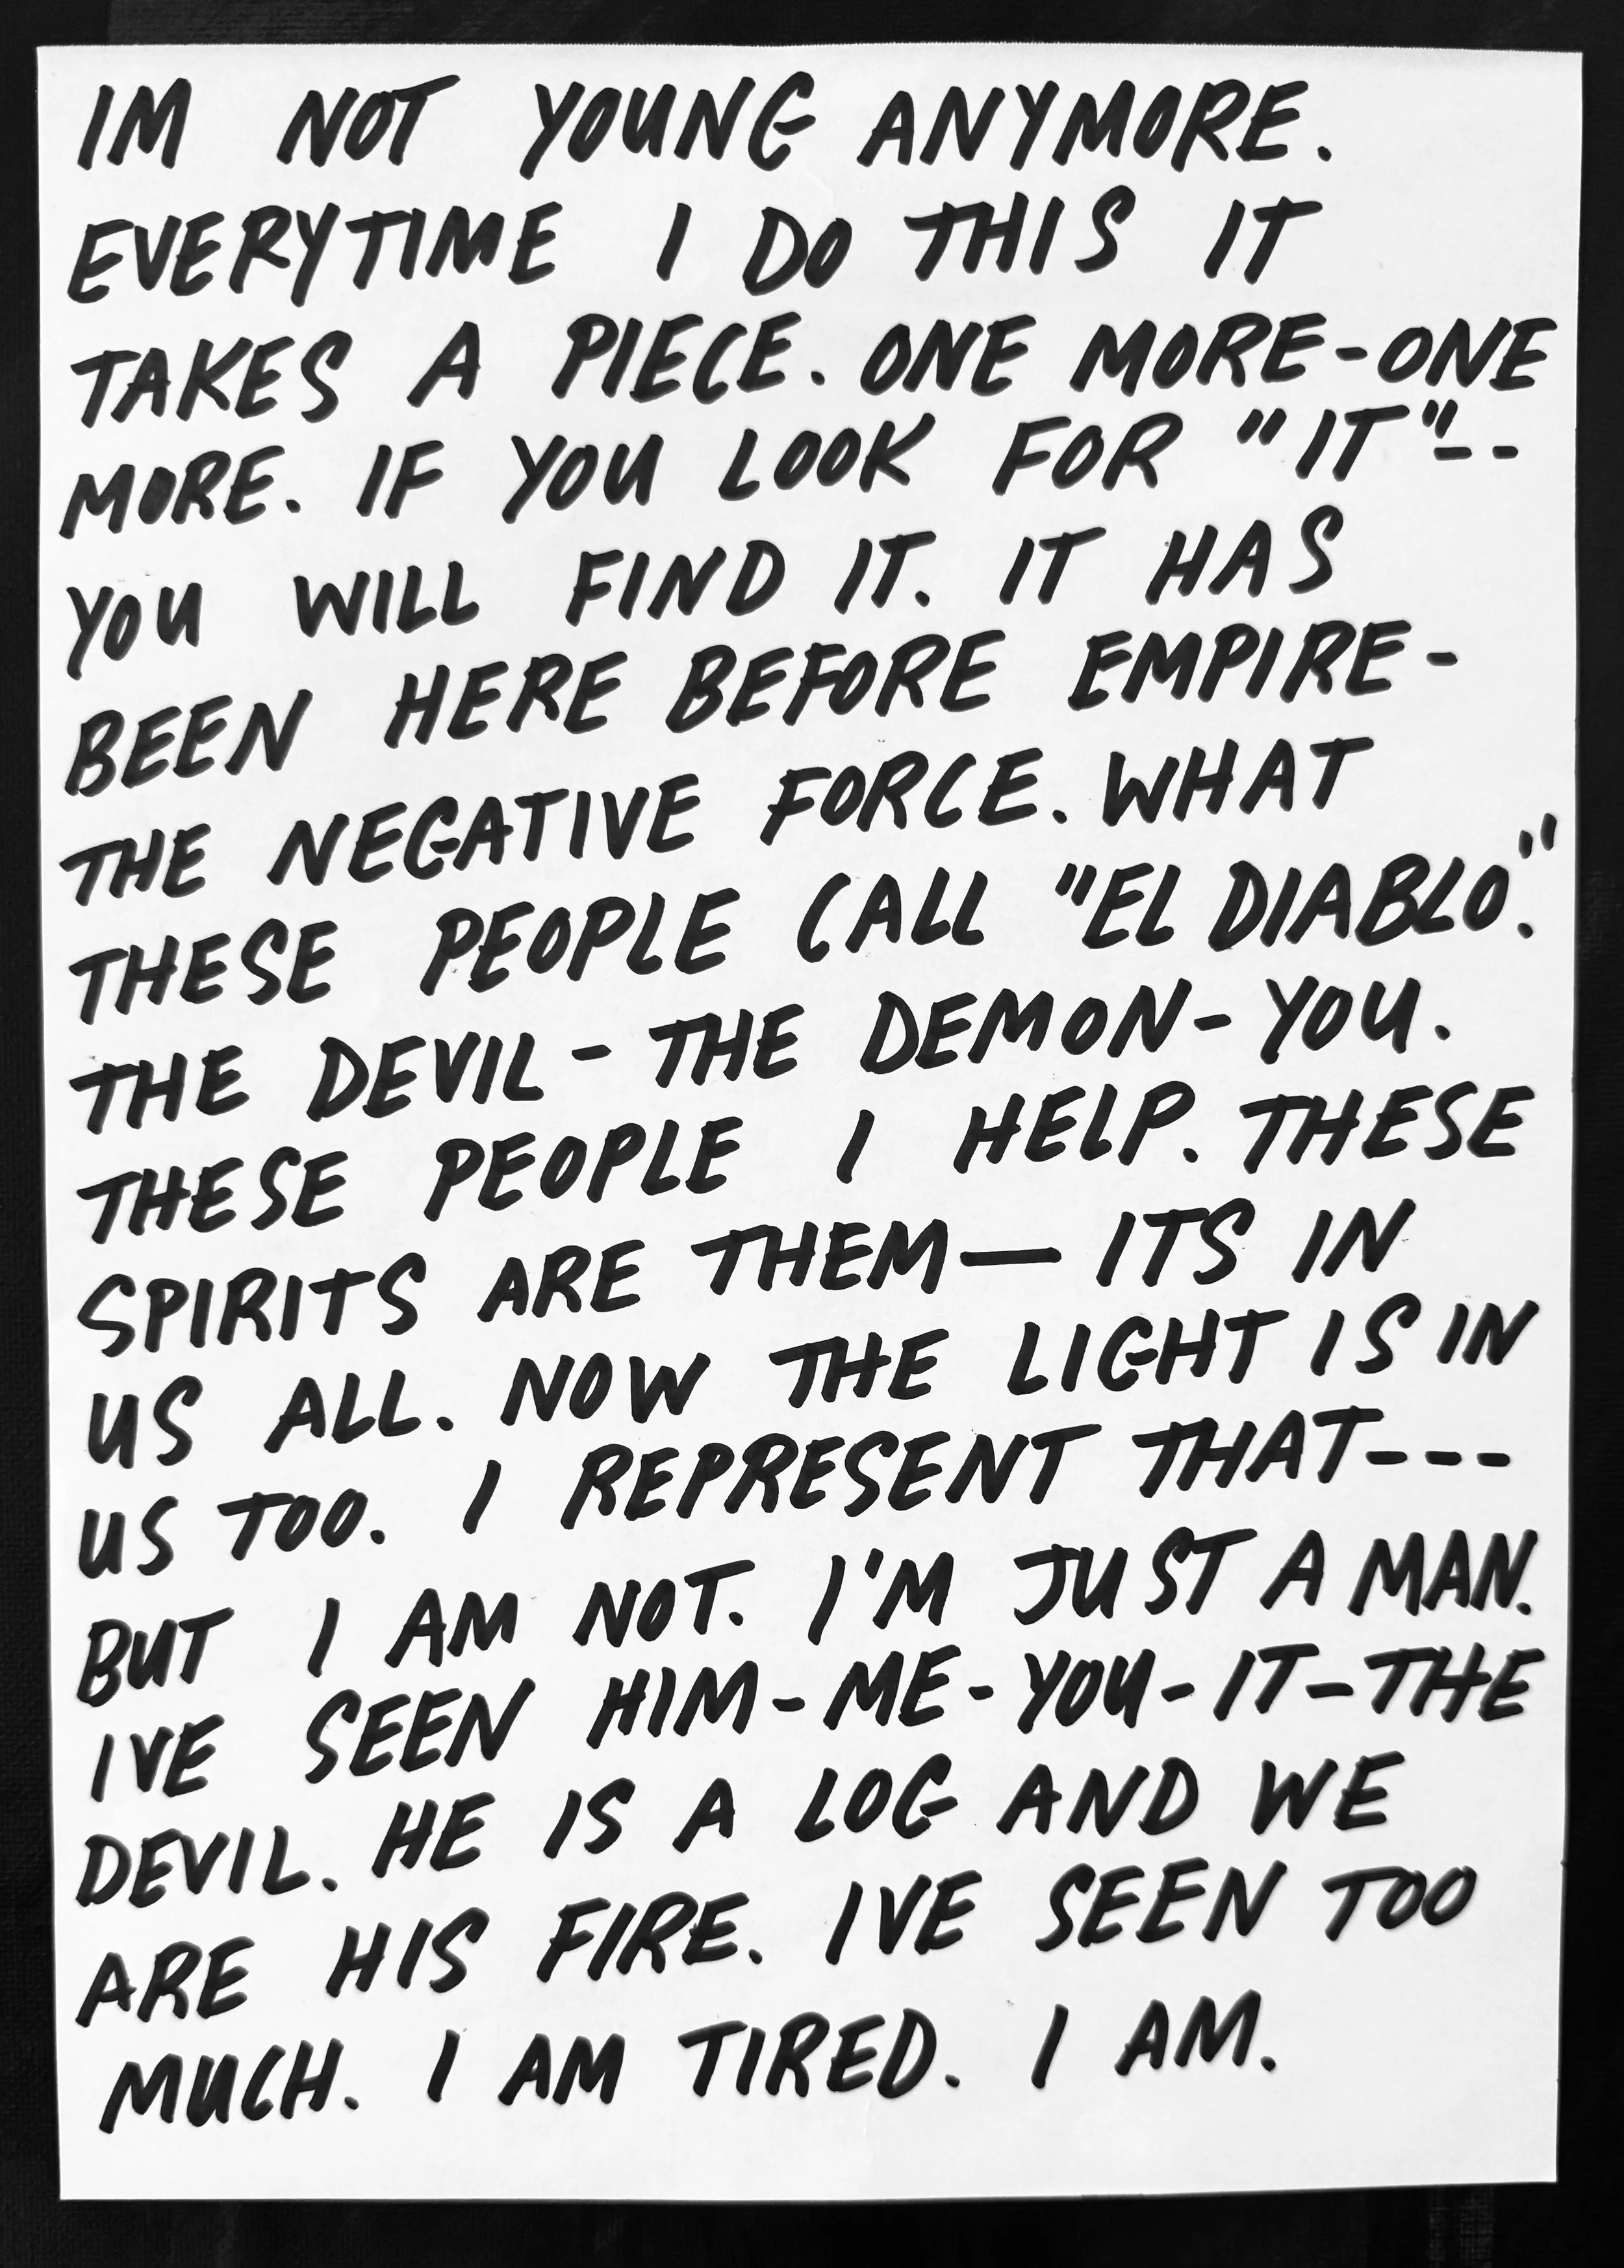 IM NOT YOUNG ANYMORE.
EVERYTIME I DO THIS IT
TAKES A PIECE. ONE MORE-ONE
MORE. IF YOU LOOK FOR "IT"--
YOU WILL FIND IT. IT HAS
BEEN HERE BEFORE EMPIRE-
THE NEGATIVE FORCE. WHAT
THESE PEOPLE CALL "EL DIABLO."
THE DEVIL-THE DEMON-YOU.
THESE PEOPLE I HELP. THESE
SPIRITS ARE THEM— ITS IN
US ALL. NOW THE LIGHT IS IN
US TOO. I REPRESENT THAT---
BUT I AM NOT. I'M JUST A MAN.
IVE SEEN HIM-ME-YOU-IT-THE
DEVIL. HE IS A LOG AND WE
ARE HIS FIRE. IVE SEEN TOO
MUCH. I AM TIRED. I AM.